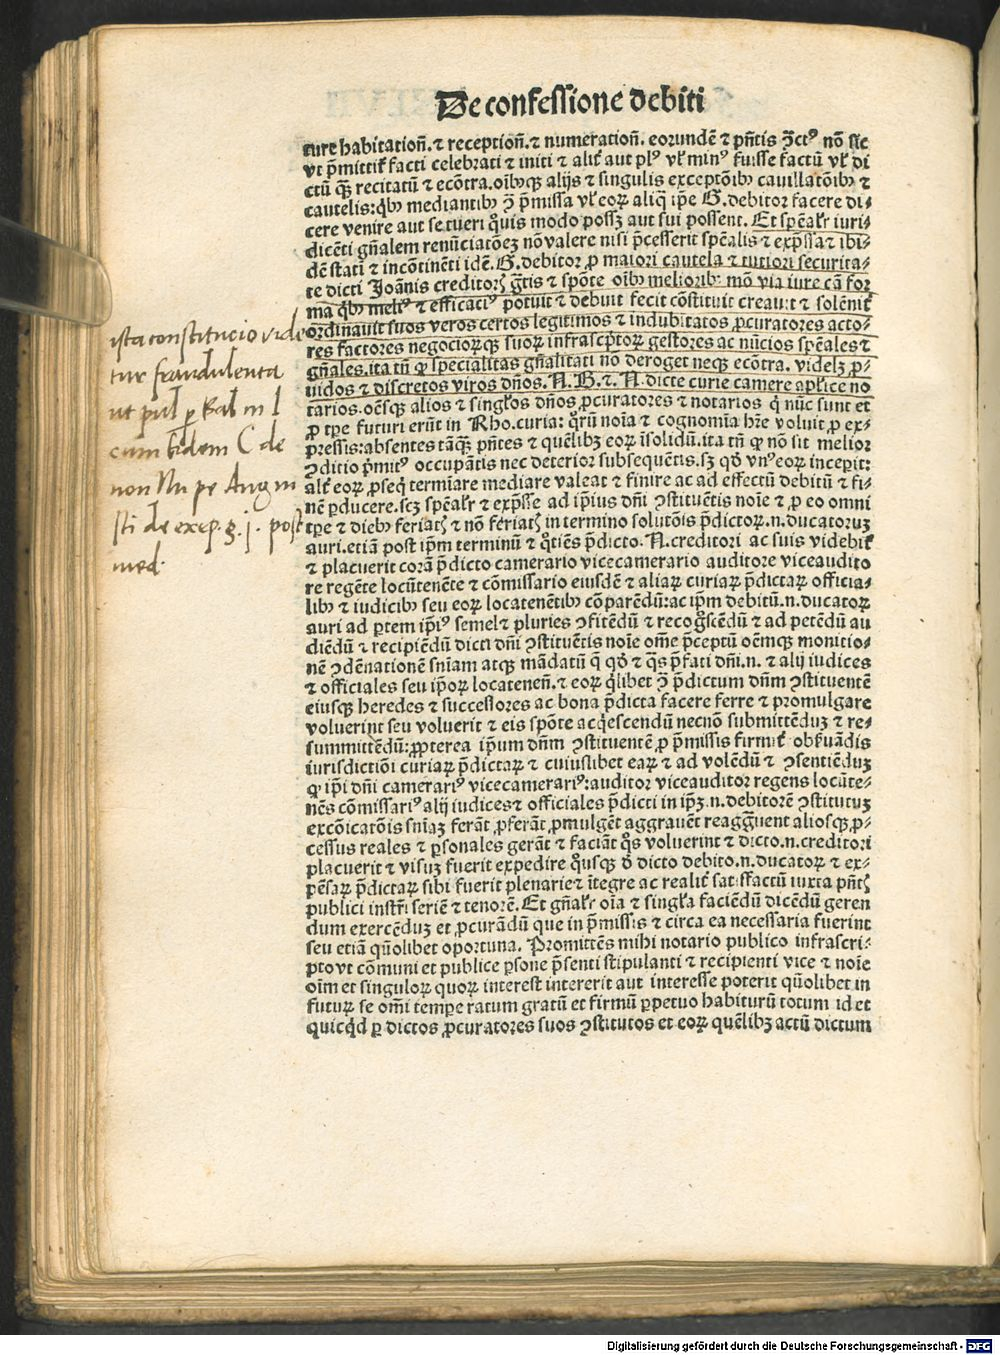 De confessione debiti
ture habitatioñ. ⁊ receptioñ. ⁊ numeratioñ. eorundē ⁊ pñtis ꝯctꝰ nō sic
vt p̄mittit᷑ facti celebrati ⁊ initi ⁊ alit᷑ aut plꝰ vl᷑ minꝰ fuisse factū vl᷑ di
ctū qꝫ recitatū ⁊ ecōtra. oībꝰqꝫ alijs ⁊ singulis exceptōibꝰ cauillatōibꝰ ⁊
cautelis: qbꝰ mediantibꝰ ꝯ̄ p̄missa vl᷑ eoꝝ aliq̄ ip̄e B. debitor facere di⸗
cere venire aut se tueri quis modo possꝫ aut sui possent. Et spēalr iuri⸗
dicēti gñalem renūciatōeꝫ nō valere nisi p̄cesserit spēalis ⁊ exp̄ssa ⁊ ibi⸗
dē stati ⁊ incōtinēti idē. B. debitor ꝓ maiori cautela ⁊ tutiori securita⸗
te dicti Joānis creditorꝭ gr̄tis ⁊ spōte oībꝰ melioribꝰ mō via iure cā for
ma qbꝰ melꝰ ⁊ efficaciꝰ potuit ⁊ debuit fecit cōstituit creauit ⁊ solēnit᷑
ordinauit suos veros certos legitimos ⁊ indubitatos ꝓcuratores acto⸗
res factores negociorꝝqꝫ suoꝝ infrascptoꝝ gestores ac nūcios spēales ⁊
gñales. ita tñ ꝙ specialitas gñalitati nō deroget neqꝫ ecōtra. videlꝫ ꝓ⸗
uidos ⁊ discretos viros dños. A. B. ⁊. N. dicte curie camere aplice no
tarios. oēsqꝫ alios ⁊ singlos dños ꝓcuratores ⁊ notarios q̄ nūc sunt et
ꝓ tꝑe futuri erūt in Rho. curia: qrū noīa ⁊ cognomīa hr̄e voluit ꝓ ex⸗
pressis: absentes tāqꝫ pñtes ⁊ quēlibꝫ eoꝝ īsolidū. ita tñ ꝙ nō sit melior
ꝯditio p̄mitꝰ occupātis nec deterior subsequētis. sꝫ qd vnꝰ eoꝝ inceperit:
alt᷑ eoꝝ ꝓseq termīare mediare valeat ⁊ finire ac ad effectū debitū ⁊ fi⸗
nē ꝑducere. scꝫ spēalr ⁊ exp̄sse ad ip̄ius dñi ꝯstituētis noīe ⁊ ꝓ eo omni
tꝑe ⁊ diebꝰ feriatꝭ ⁊ nō feriatꝭ in termino solutōis p̄dictoꝝ. n. ducatoruꝫ
auri. etiā post ip̄m terminū ⁊ qtiēs p̄dicto. N. creditori ac suis videbit᷑
⁊ placuerit corā p̄dicto camerario vicecamerario auditore viceaudito
re regēte locūtenēte ⁊ cōmissario eiusdē ⁊ aliaꝝ curiaꝝ p̄dictaꝝ officia⸗
libꝰ ⁊ iudicibꝰ seu eoꝝ locatenētibꝰ cōparēdū: ac ip̄m debitū. n. ducatoꝝ
auri ad ꝑtem ip̄iꝰ semel ⁊ pluries ꝯfitēdū ⁊ recogscēdū ⁊ ad petēdū au
diēdū ⁊ recipiēdū dicti dñi ꝯstituētis noīe om̄e p̄ceptū oēmqꝫ monitio⸗
nē ꝯdēnationē snīam atqꝫ mādatū q̄ qd ⁊ q̄s p̄fati dñi. n. ⁊ alij iudices
⁊ officiales seu ip̄oꝝ locatenen̄. ⁊ eoꝝ qlibet ꝯ̄ p̄dictum dñm ꝯstituentē
eiusqꝫ heredes ⁊ successores ac bona p̄dicta facere ferre ⁊ promulgare
voluerint seu voluerit ⁊ eis spōte acqescendū necnō submittēduꝫ ⁊ re⸗
summittēdū: ꝓpterea ip̄um dñm ꝯstituentē ꝓ p̄missis firmit᷑ obƀuādis
iurisdictiōi curiaꝝ p̄dictaꝝ ⁊ cuiuslibet eaꝝ ⁊ ad volēdū ⁊ ꝯsentiēduꝫ
ꝙ ip̄i dñi camerariꝰ vicecamerariꝰ: auditor viceauditor regens locūte⸗
nēs cōmissariꝰ alij iudices ⁊ officiales p̄dicti in ip̄ꝫ. n. debitorē ꝯstitutuꝫ
excōicatōis snīaꝫ ferāt ꝓferāt ꝓmulgēt aggrauēt reaggūent aliosqꝫ ꝓ⸗
cessus reales ⁊ ꝑsonales gerāt ⁊ faciāt qs voluerint ⁊ dicto. n. creditori
placuerit ⁊ visuꝫ fuerit expedire qusqꝫ ð dicto debito. n. ducatoꝝ ⁊ ex⸗
pēsaꝝ p̄dictaꝝ sibi fuerit plenarie ⁊ ītegre ac realit᷑ satisfactū iuxta pñtꝭ
publici instr̄i seriē ⁊ tenorē. Et gñalr oīa ⁊ singla faciēdū dicēdū geren
dum exercēduꝫ et ꝓcurādū que in p̄missis ⁊ circa ea necessaria fuerint
seu etiā qūolibet oportuna. Promittēs mihi notario publico infrascri⸗
pto vt cōmuni et publice ꝑsone p̄senti stipulanti ⁊ recipienti vice ⁊ noīe
oīm et singuloꝝ quoꝝ interest intererit aut interesse poterit qūolibet in
futuꝝ se om̄i tempe ratum gratū et firmū ꝑpetuo habiturū totum id et
quicqd ꝑ dictos ꝓcuratores suos ꝯstitutos et eoꝝ quēlibꝫ actū dictum
ista constitucio vide
tur fraudulenta
ut pul ꝑ Bal in l
cum eidem C de
non Nu pe Augu
sti de excep. §. j. post
med.
Digitalisierung gefördert durch die Deutsche Forschungsgemeinschaft - DFG